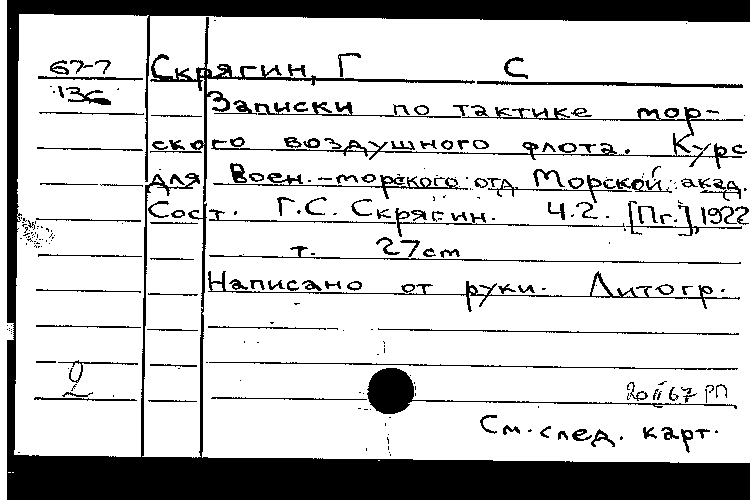 67-7 Скрягин, Г С
136 Записки по тактике мор-
ского воздушного флота. Курс
для Воен.-морского отд Морской акад.
Сост. Г.С. Скрягин. Ч.2. [Пг.], 1922
т. 27 cm
Написано от руки. Литогр.
2 20 II 67 РП
См. след. карт.